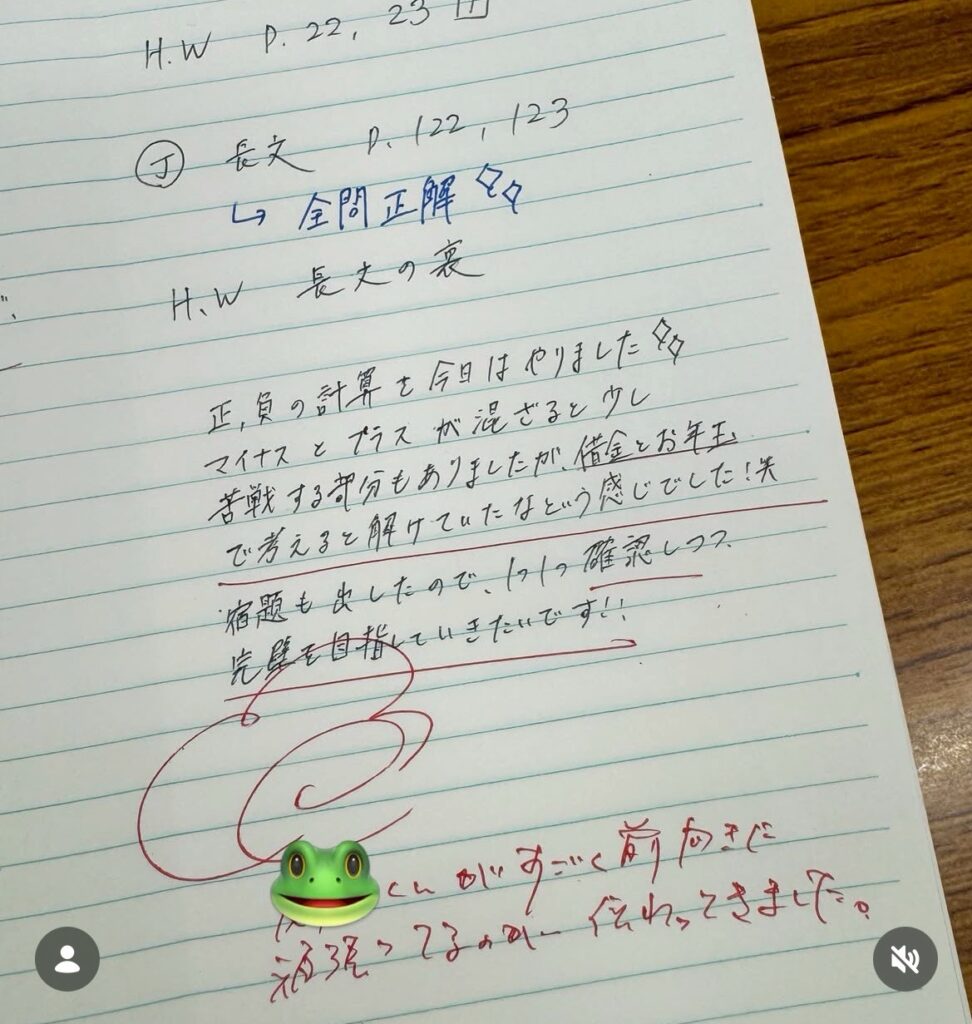 H.W P.22, 23
Ⓙ 長文 P.122, 123
↳ 全問正解
H.W 長文の裏
正,負の計算を今日はやりました
マイナスとプラスが混ざると少し
苦戦する部分もありましたが、借金とお年玉
で考えると解けていたなという感じでした!笑
宿題も出したので、1つ1つ確認しつつ
完璧を目指していきたいです!!
くんがすごく前向きに
頑張ってるのが伝わってきました。